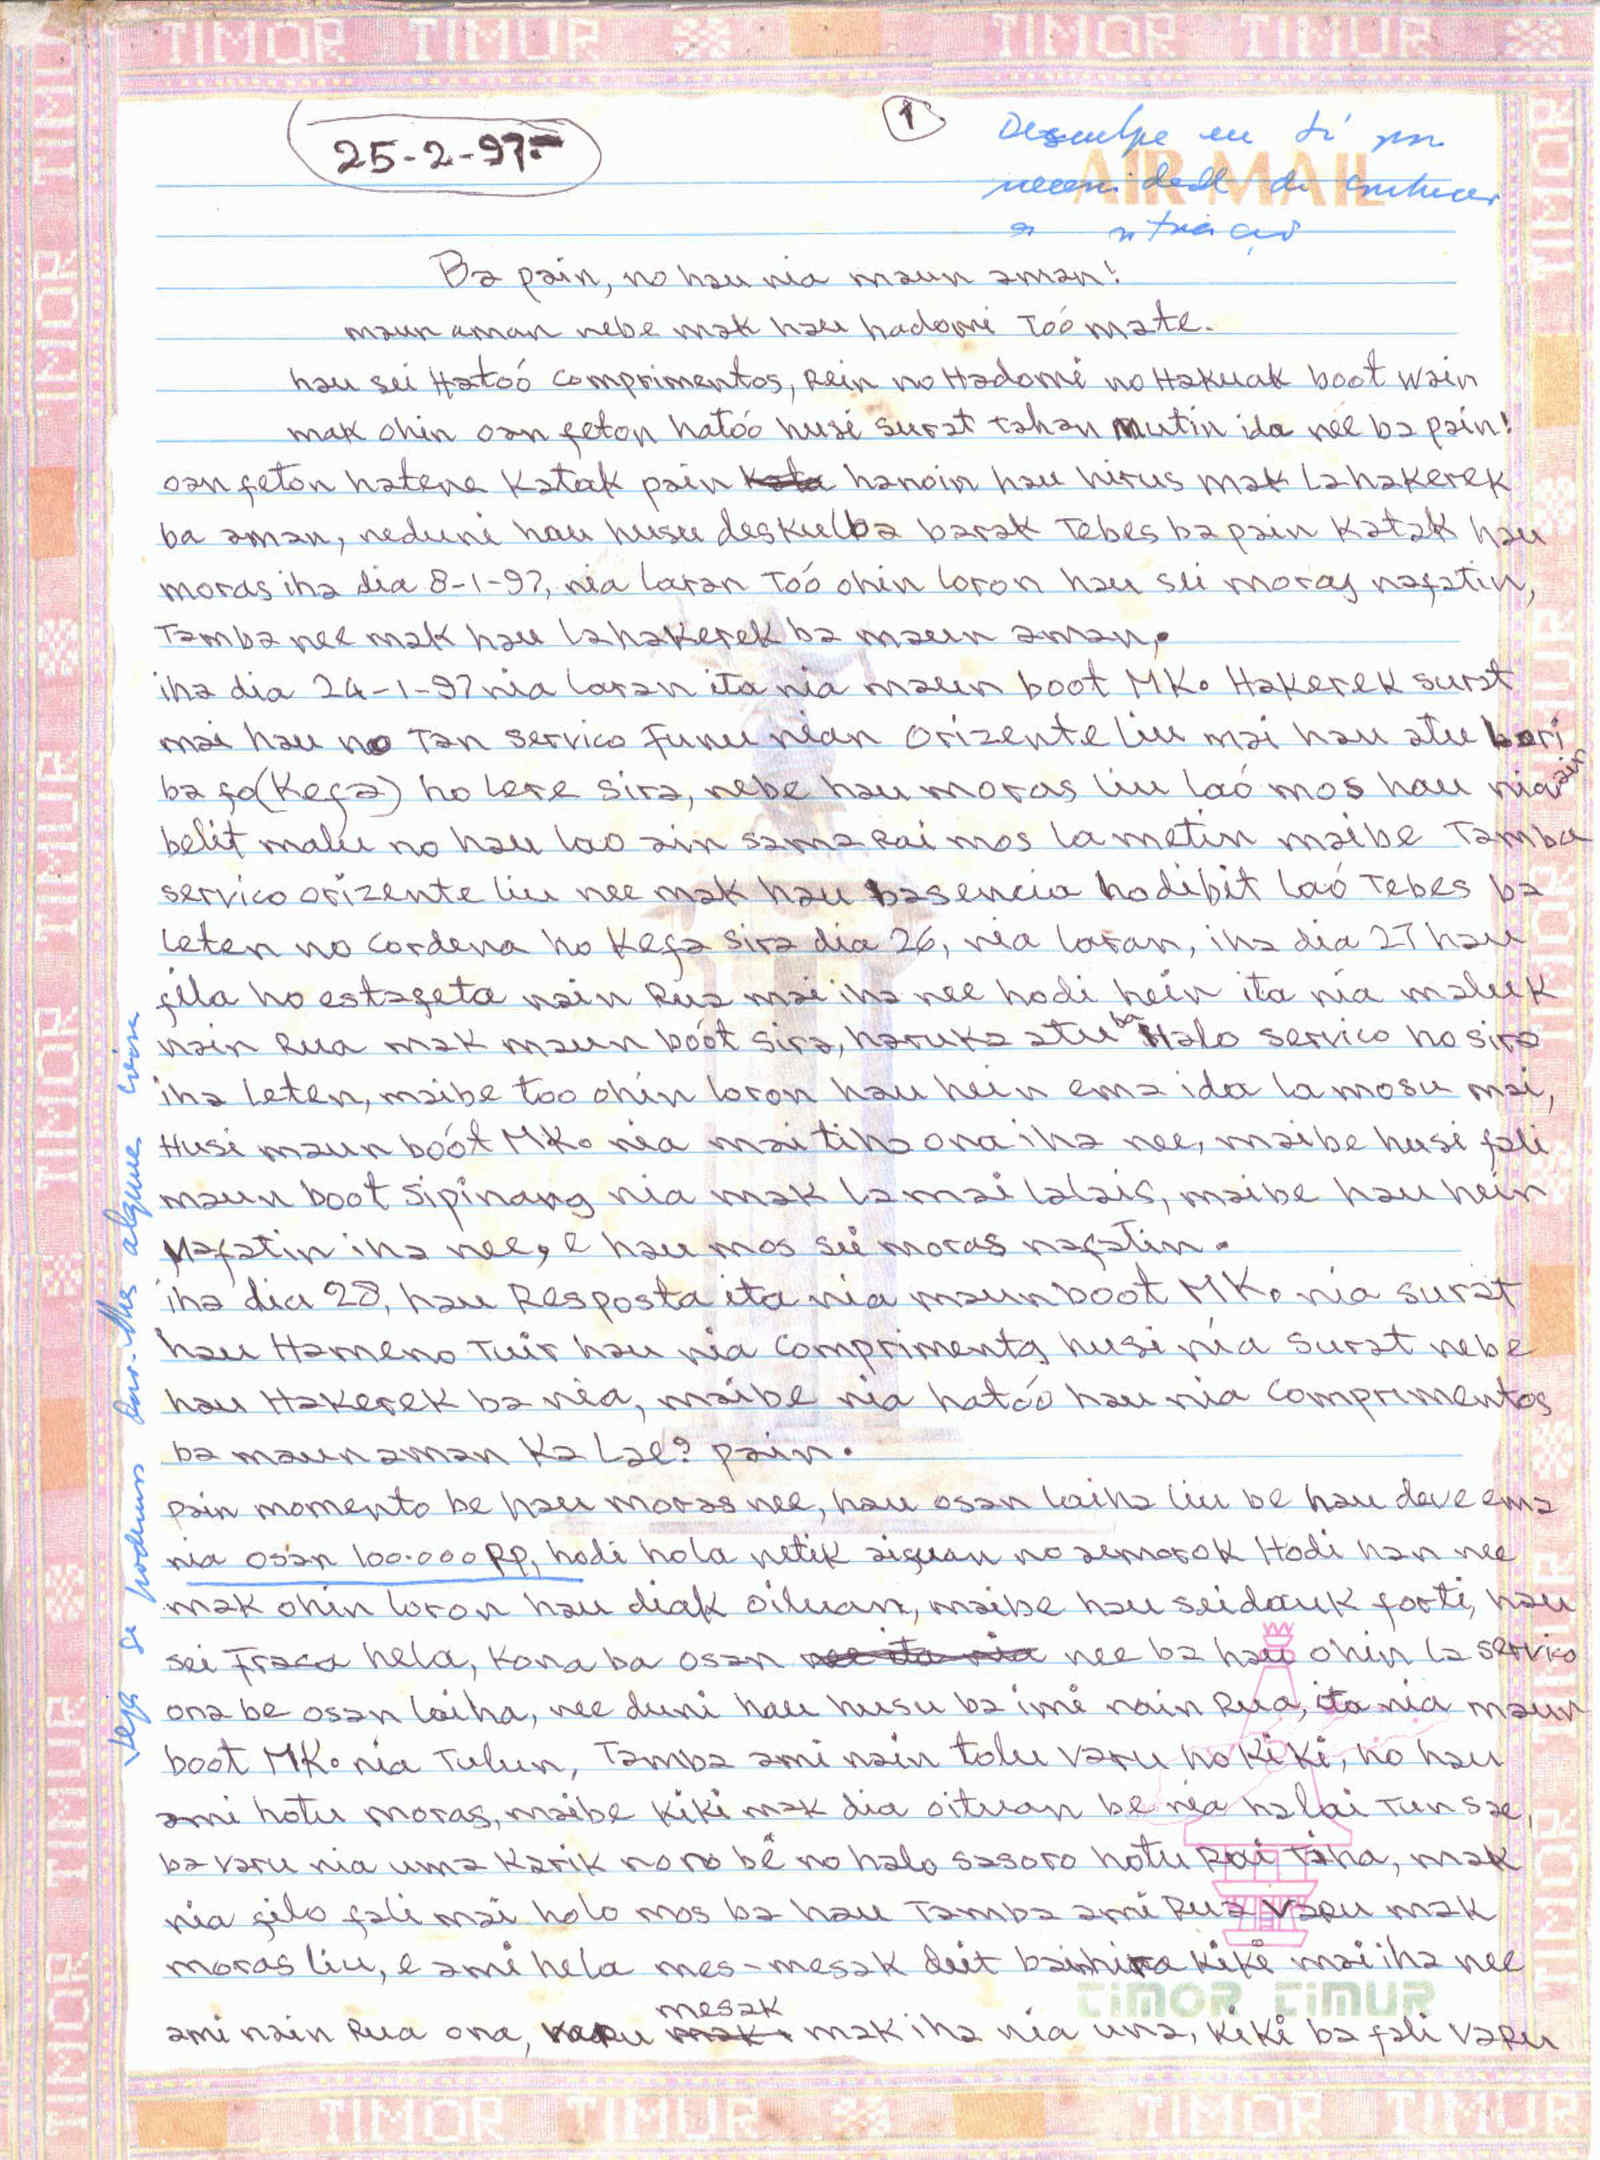 TIMOR TIMUR TIMOR TIMUR
25-2-97.
1
Desculpe eu li por
necessidade de conhecer
a situação
AIR MAIL
Ba pain, no hau nia maun aman!
maun aman nebe mak hau hadomi Toó mate.
hau sei Hatoó comprimentos, Rein no Hadomi no Hakuak boot wain
mak ohin oan feton hatóo husi surat tahan mutin ida neé ba pain!
oan feton hatene katak pain kata hanoin hau hirus mak Lahakerek
ba aman, neduni hau husu deskulba barak Tebes ba pain katak hau
moras iha dia 8-1-97, nia laran Toó ohin loron hau sei moras nafatin,
Tamba nee mak hau Lahakerek ba maun aman.
iha dia 24-1-97 nia laran ita nia maun boot MK. Hakerek surat
mai hau no Tan servico Funu nian orizente liu mai hau atu bori
ba fo (Kefa) ho Lere sira, nebe hau moras liu laó mos hau nia ain
belit malu no hau lao ain sama Rai mos la metin maibe Tamba
servico orizente liu nee mak hau basencia hodibit laó Tebes ba
leten no cordena ho Kefa sira dia 26, nia laran, iha dia 27 hau
fila ho estafeta nain Rua mai iha nee hodi hein ita nia maluk
nain Rua mak maun bóót sira, haruka atu ba Halo servico ho sira
iha leten, maibe too ohin loron hau hein ema ida la mosu mai,
Husi maun bóót MK. nia mai tiha ona iha nee, maibe husi fali
maun boot Sipinang nia mak la mai lalais, maibe hau hein
Nafatin iha nee, e hau mos sei moras nafatin.
iha dia 28, hau Resposta ita nia maun boot MK. nia surat
hau Hameno Tuir hau nia comprimentos husi nia surat nebe
hau Hakerek ba nia, maibe nia hatóó hau nia comprimentos
ba maun aman Ka Lae? pain.
pain momento be hau moras nee, hau osan laiha liu be hau deve ema
nia osan 100.000 RP, hodi hola netik aifuan no aemorok Hodi han nee
mak ohin loron hau diak oituan, maibe hau seidauk forti, hau
sei Fraca hela, kona ba osan nee ita nia nee ba hau ohin la servico
ona be osan laiha, nee duni hau husu ba imi nain Rua, ita nia maun
boot MK. nia Tulun, Tamba ami nain tolu Varu ho Kiki, ho hau
ami hotu moras, maibe Kiki mak dia oituan be nia halai Tun sae,
ba Varu nia uma Karik nono bé no halo sasoro hotu Rai Tiha, mak
nia filo fali mai holo mos ba hau Tamba ami Rua Varu mak
moras liu, e ami hela mes-mesak deit bainhira Kiki mai iha nee
ami nain Rua ona, Varu mak mesak mak iha nia uma, Kiki ba fali Varu
Veja se podemos dar-lhes alguma coisa
TIMOR TIMUR
TIMOR TIMUR TIMOR TIMUR